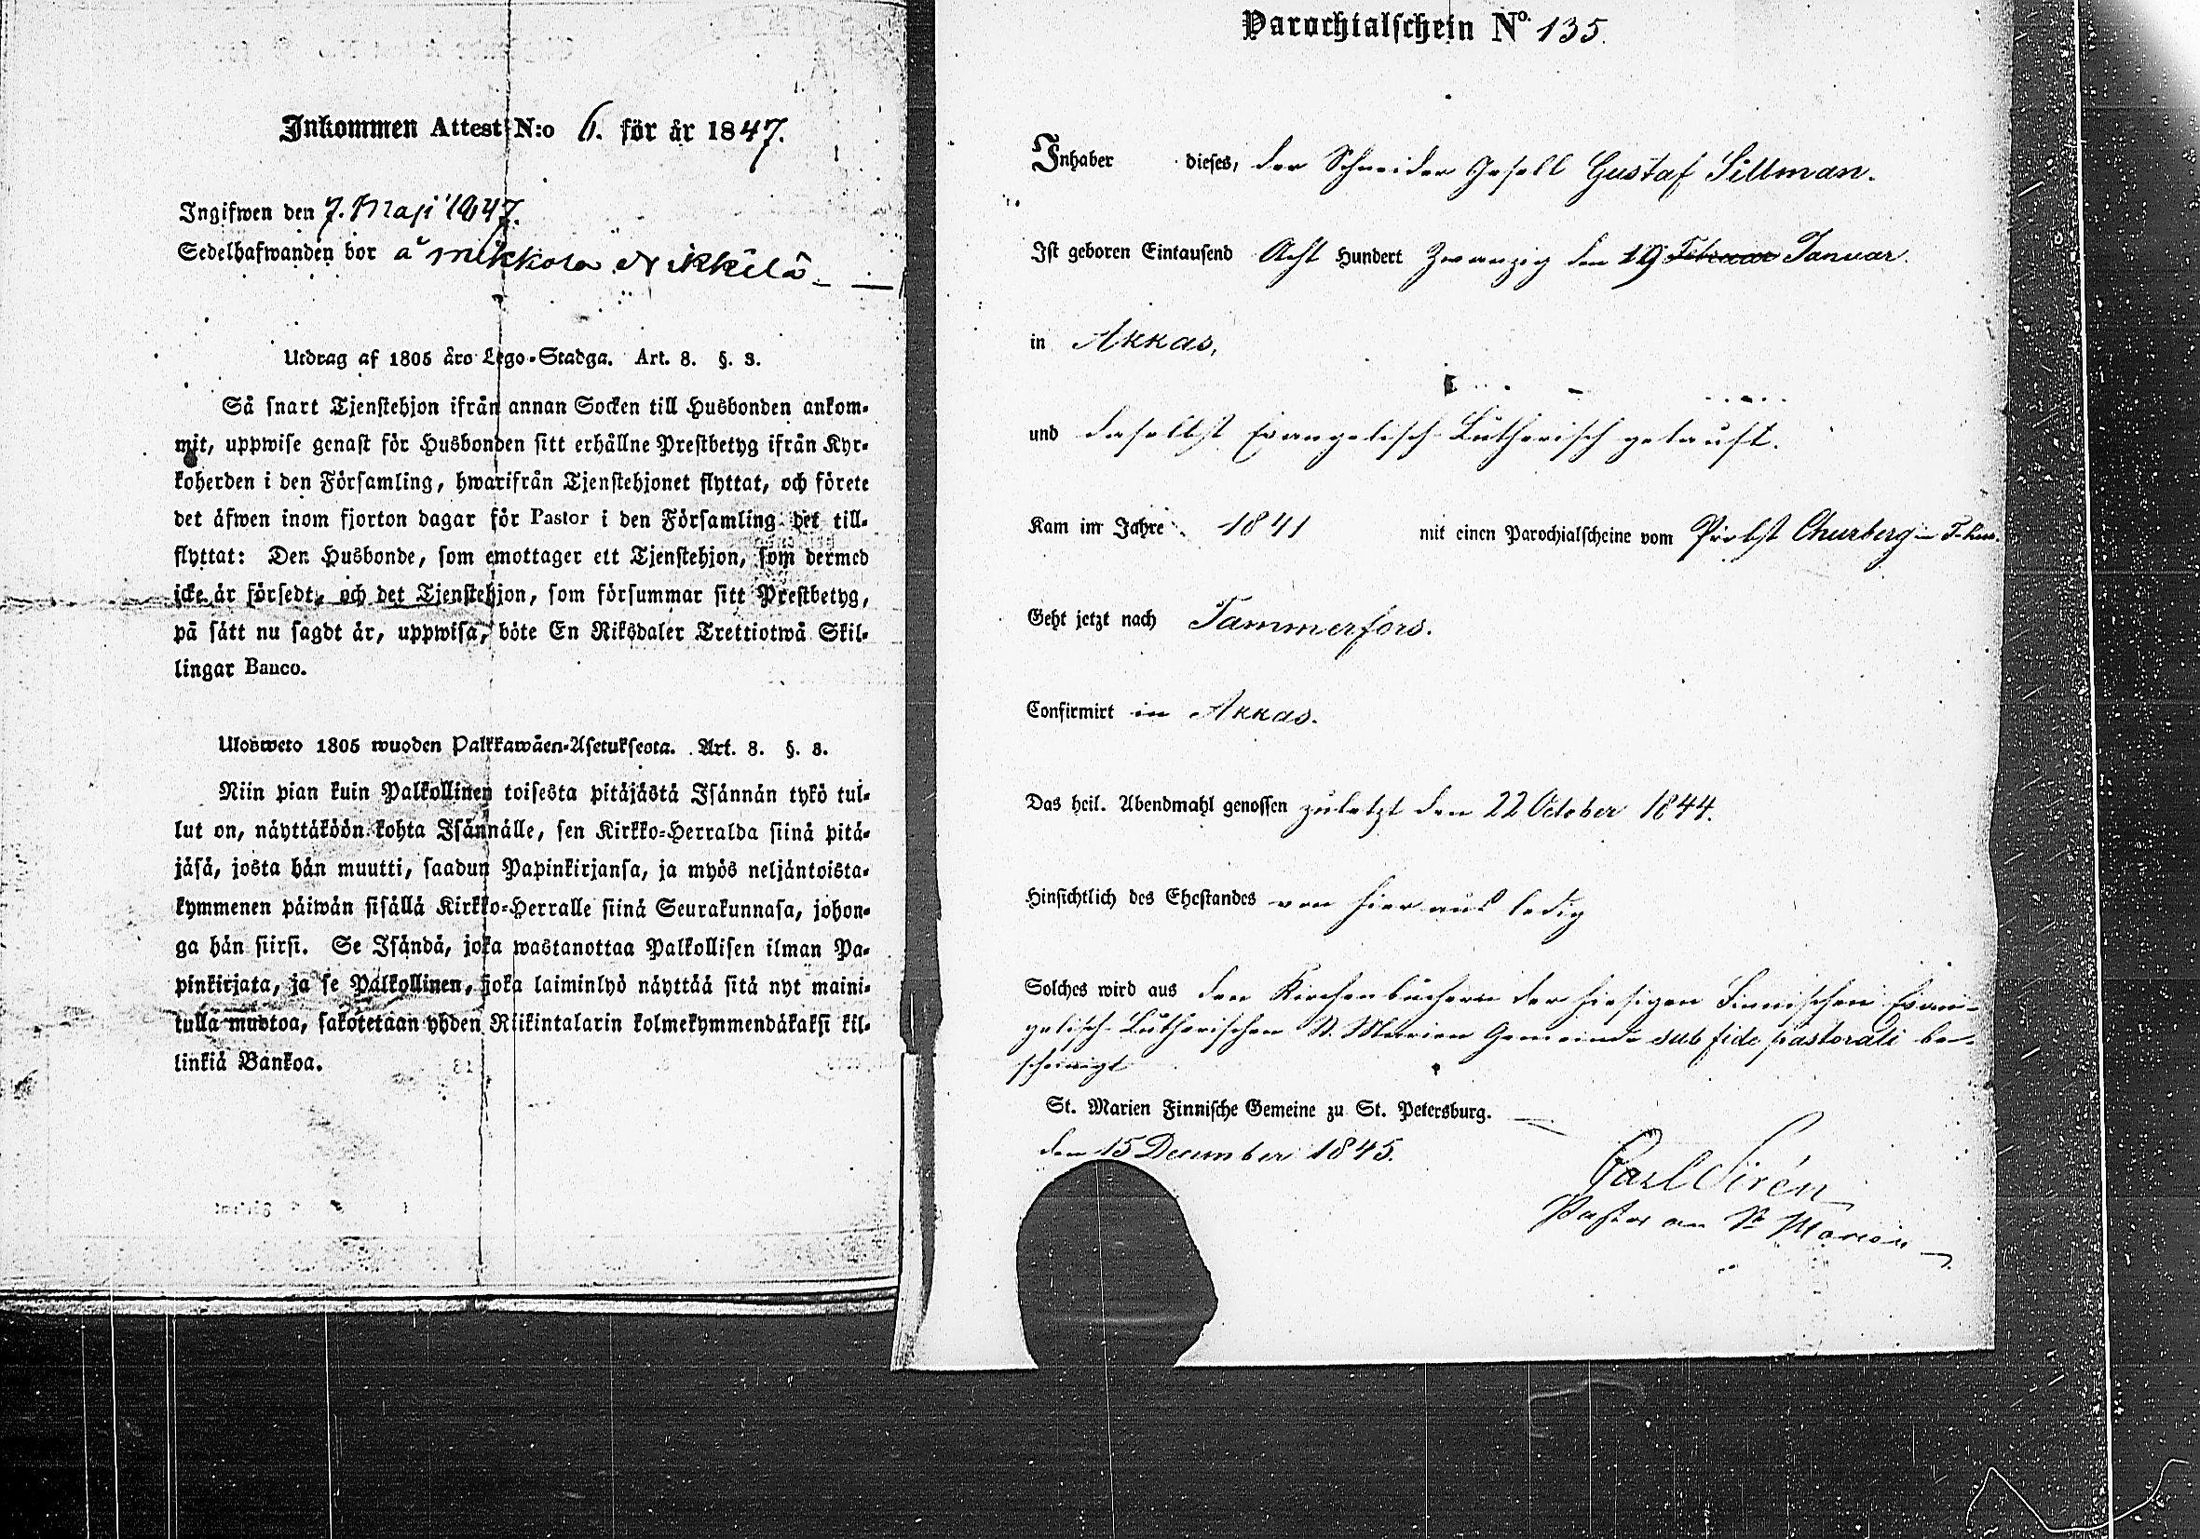 Inkommen Attest N:o 6. för år 1847.
Ingifwen den 7. Maji 1847.
Sedelhafwanden bor å Mikkola Nikkilä
Utdrag af 1805 åro Lego-Stadga. Art. 8. §. 3.
Så snart Tjenstehjon ifrån annan Socken till Husbonden ankom-
mit, uppwise genast för Husbonden sitt erhållne Prestbetyg ifrån Kyr-
koherden i den Församling, hwarifrån Tjenstehjonet flyttat, och förete
det äfwen inom fjorton dagar för Pastor i den Församling det till-
flyttat: Den Husbonde, som emottager ett Tjenstehjon, som dermed
icke är försedt, och det Tjenstehjon, som försummar sitt Prestbetyg,
på sätt nu sagdt är, uppwisa, böte En Riksdaler Trettiotwå Skil-
lingar Banco.
Ulosweto 1805 wuoden Palkkawäen-Asetuksesta. Art. 8. §. 3.
Niin pian kuin Palkollinen toisesta pitäjästä Isännän tykö tul-
lut on, näyttäköön kohta Isännälle, sen Kirkko-Herralda siinä pitä-
jäsä, josta hän muutti, saadun Papinkirjansa, ja myös neljäntoista-
kymmenen päiwän sisällä Kirkko-Herralle siinä Seurakunnasa, johon-
ga hän siirsi. Se Isändä, joka wastanottaa Palkollisen ilman Pa-
pinkirjata, ja se Palkollinen, joka laiminlyö näyttää sitä nyt maini-
tulla muotoa, sakotetaan yhden Riikintalarin kolmekymmendäkaksi kil-
linkiä Bankoa.
Parochialschein No. 135.
Inhaber dieses, der Schneider Gesell Gustaf Sillman.
Ist geboren Eintausend Acht Hundert Zwanzig den 19 Februar Januar.
in Akkas,
und daselbst Evangelisch-Lutherisch getauft.
Kam im Jahre 1841 mit einen Parochialscheine vom Probst Churberg in
Geht jetzt nach Tammerfors.
Confirmirt in Akkas.
Das heil. Abendmahl genossen zuletzt den 22 October 1844.
Hinsichtlich des Ehestandes von hier aus ledig
Solches wird aus den Kirchenbüchern der hiesigen Finnischen Evan-
gelisch-Lutherischen St. Marien Gemeinde sub fide pastorali be-
scheinigt
St. Marien Finnische Gemeine zu St. Petersburg.
den 15 December 1845.
Carl Sirén
Pastor an St Marien